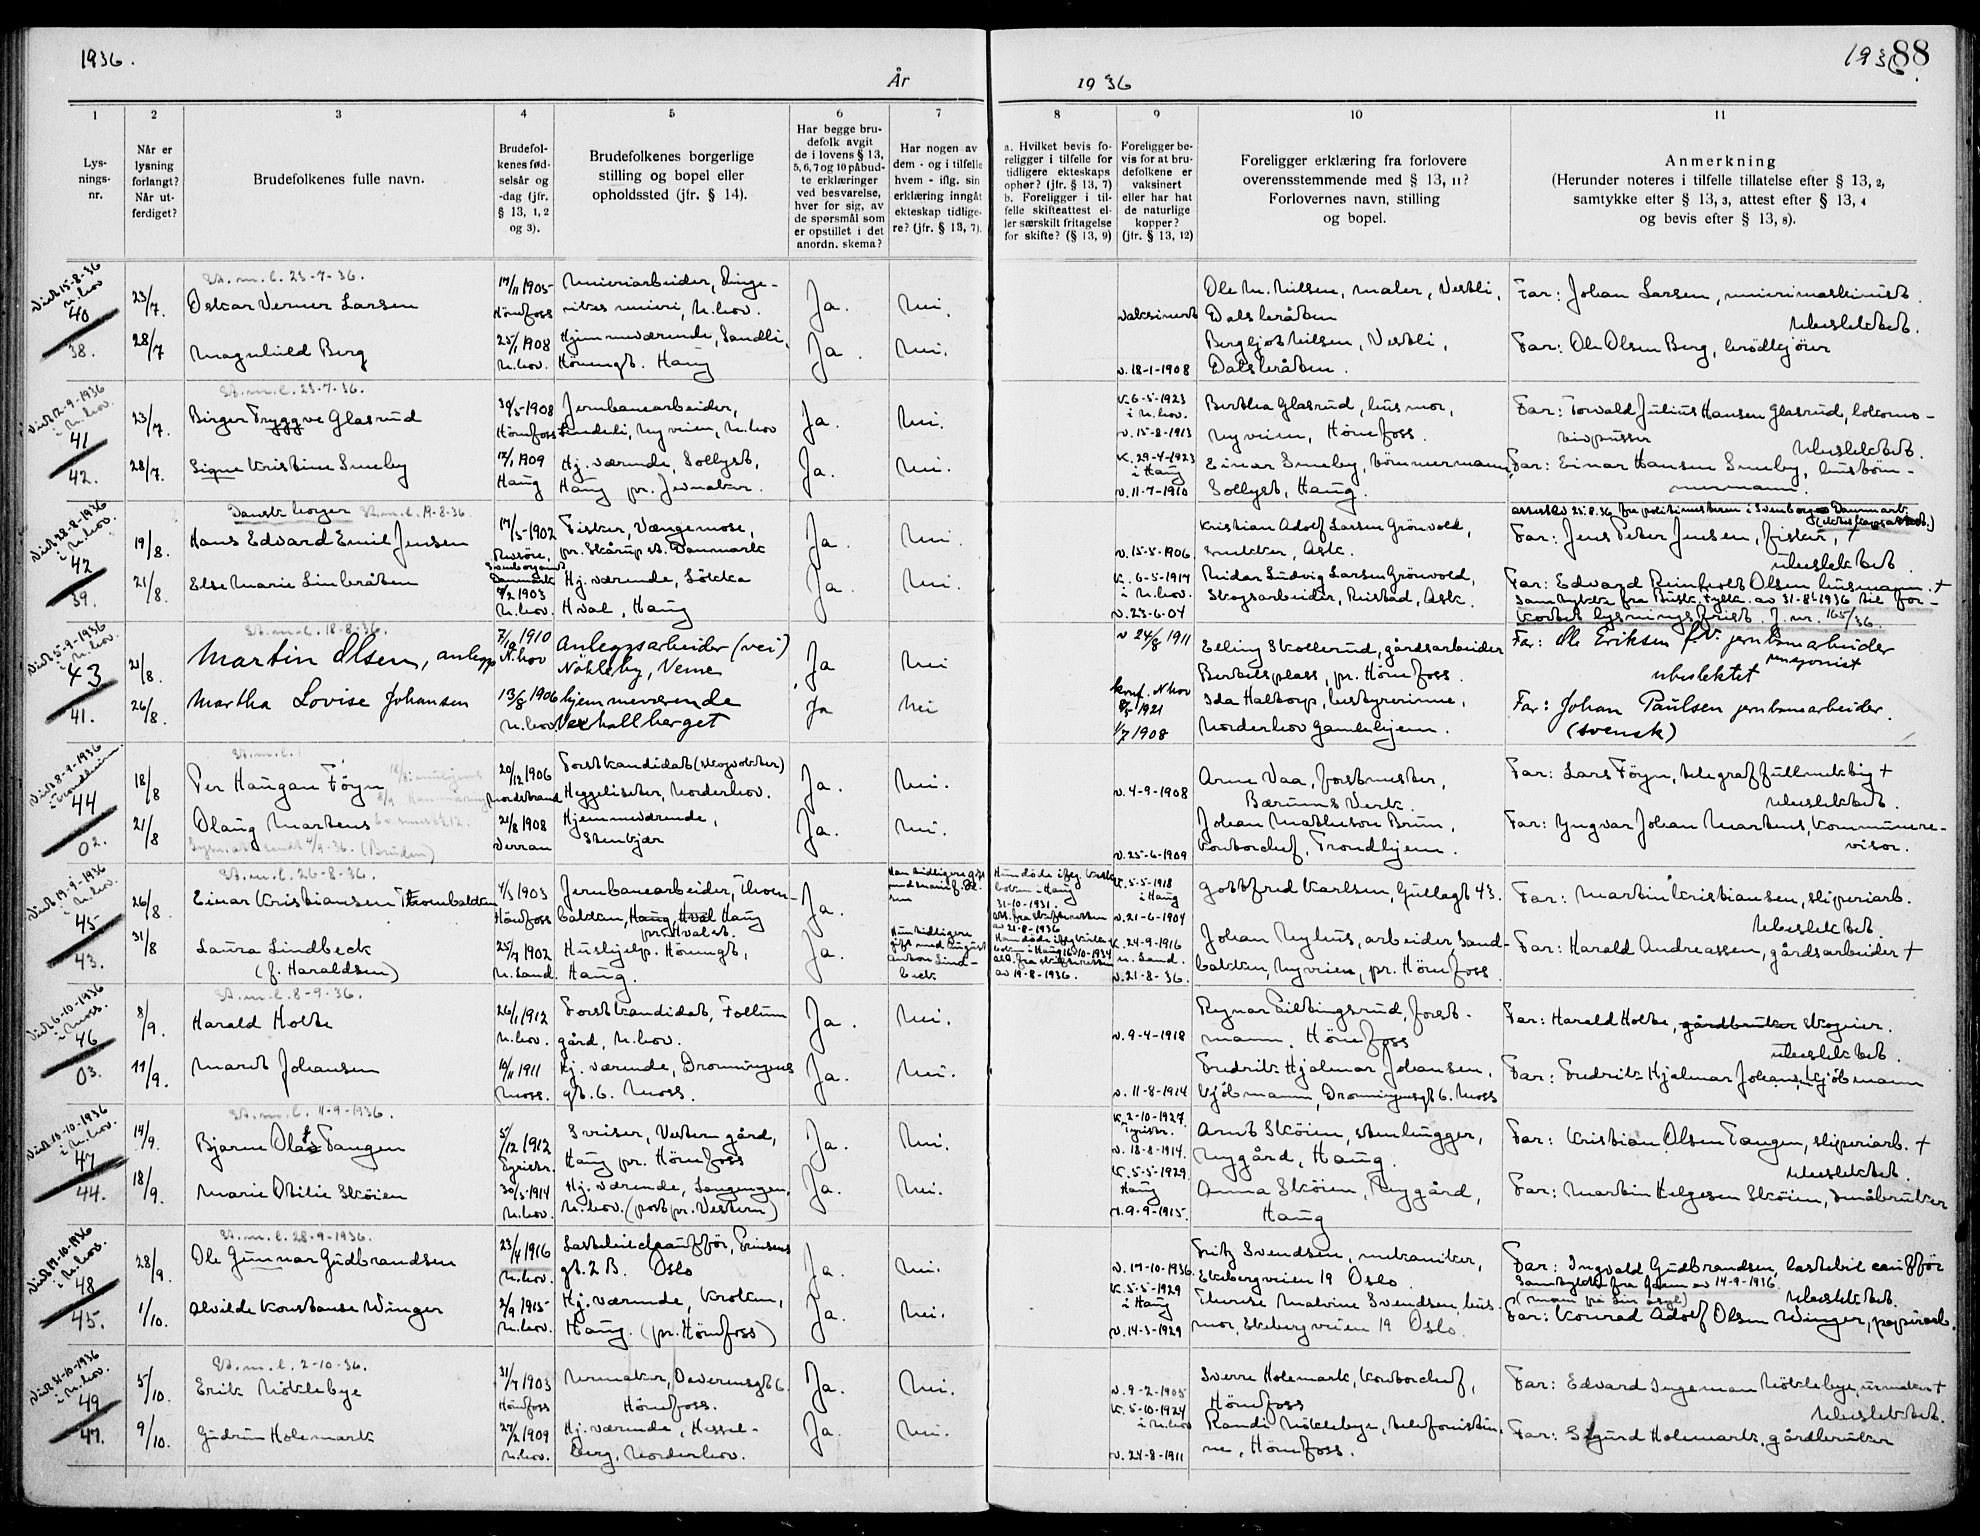 1936.
År
1936
1936.
88
1
Lys-
nings-
nr.
2
Når er
lysning
forlangt?
Når ut-
ferdiget?
3
Brudefolkenes fulle navn.
4
Brudefol-
kenes fød-
selsår og
-dag (jfr.
§ 13, 1, 2
og 3).
5
Brudefolkenes borgerlige
stilling og bopel eller
opholdssted (jfr. § 14).
6
Har begge bru-
defolk avgit
de i lovens § 13,
5, 6, 7 og 10 påbud-
te erklæringer
ved besvarelse,
hver for sig, av
de spørsmål som
er opstillet i det
anordn. skema?
7
Har nogen av
dem - og i tilfelle
hvem - iflg. sin
erklæring inngått
ekteskap tidlige-
re? (jfr. § 13, 7).
8
a. Hvilket bevis fo-
religger i tilfelle for
tidligere ekteskaps
ophør? (jfr. § 13, 7)
b. Foreligger i til-
felle skifteattest el-
ler særskilt fritagelse
for skifte? (§ 13, 9)
9
Foreligger be-
vis for at bru-
defolkene er
vaksinert
eller har hat
de naturlige
kopper?
(jfr. § 13, 12)
10
Foreligger erklæring fra forlovere
overensstemmende med § 13, 11?
Forlovernes navn, stilling
og bopel.
11
Anmerkning
(Herunder noteres i tilfelle tillatelse efter § 13, 2,
samtykke efter § 13, 3, attest efter § 13, 4
og bevis efter § 13, 8).
Viet 15-8-36
N.hov
40
38.
23/7.
28/7
St. m. l. 23-7-36.
Oskar Verner Larsen
Magnhild Berg
17/11 1905
Hönefoss
25/1 1908
N.hov.
Meieriarbeider, Ringe-
rikes meieri, N.hov.
Hjemmeværende, Sandli,
Hönengt. Haug
Ja.
Ja.
Nei.
Nei.
vaksinert
v. 18-1-1908
Ole M. Nilsen, maler, Vestli,
Dalsbråten
Bergljot Nilsen, Vestli,
Dalsbråten.
Far: Johan Larsen, meierimaskinist.
Ubeslektet.
Far: Ole Olsen Berg, brödkjörer
Viet 12-9-1936
i N.hov.
41
42.
23/7.
28/7.
St. m. l. 23-7-36.
Birger Tryggve Glasrud
Signe Kristine Smeby
30/5-1908
Hönefoss
17/1 1909
Haug
Jernbanearbeider,
Lindeli, Nyveien, N.hov
Hj. værende, Sollyst,
Haug pr. Jevnaker.
Ja.
Ja.
Nei.
Nei.
K. 6-5-1923
i N.hov.
v. 15-8-1913
K. 29-4-1923
i Haug
v. 11-7-1910
Bertha Glasrud, husmor,
Nyveien, Hönefoss.
Einar Smeby, tömmermann,
Sollyst, Haug.
Far: Torvald Julius Hansen Glasrud, lokomo-
tivpusser
Ubeslektet.
Far: Einar Hansen Smeby, hustöm-
mermann.
Viet 28-8-1936
i N.hov.
42
39.
19/8.
21/8.
Dansk borger St. m. l. 19-8-36.
Hans Edvard Emil Jensen
Else Marie Linbråten
17/5-1902
Danmark
9/2 1903
N.hov.
Fisker, Vængemose,
pr. Skårup st. Danmark
Hj. værende, Lökka
Hval, Haug
Ja.
Ja.
Nei.
Nei.
v. 15-5-1906
K. 6-5-1917
i N.hov.
v. 23-6-04
Kristian Adolf Larsen Grönvold,
snekker, Ask.
Reidar Ludvig Larsen Grönvold,
Skogsarbeider, Reistad, Ask.
attest av 25.8.36 fra politimesteren i Svendborg, Danmark
Far: Jens Peter Jensen, fisker, †
Ubeslektet.
Far: Edvard Reinholt Olsen husmann. †
Samtykke fra Busk. fylk. av 31-8-1936 til for-
kortet lysningsfrist. J. nr. 165/36.
Viet 5-9-1936
i N.hov.
43
41.
21/8.
26/8.
St. m. l. 18-8-36.
Martin Olsen, anlegg
Martha Lovise Johansen
7/10 1910
N.hov
13/6 1906
N.hov
Anleggsarbeider (vei)
Nökleby, Veme
hjemmeværende
Vexhallberget
Ja
Ja
Nei
Nei
v 24/8 1911
konf. N.hov
8/5 1921
1/7 1908
Elling Skollerud, gårdsarbeider
Bertelsplass, pr. Hönefoss.
Ida Haltorp, bestyrerinne,
Norderhov Gamlehjem.
Far: Ole Eriksen f.v. jernbanearbeider
pensjonist
ubeslektet
Far: Johan Paulsen jernbanearbeider.
(svensk)
Viet 8-9-1936
i Trondheim.
44
02.
18/8
21/8
St. m. l.
Per Haugan Föyn
Olaug Martens
Lysn.att. sendt 4/9-36. (Bruden)
20/12 1906
Nordstrand
21/8 1908
Verran
Forstkandidat (skogvokter)
Heggelisæter, Norderhov.
Hjemmeværende,
Steinkjer
Ja.
Ja.
Nei.
Nei.
v. 4-9-1908
v. 25-6-1909
Arne Vaa, forstmester,
Bærums Verk.
Johan Mathieson Brun,
kontorchef, Trondhjem.
Far: Lars Föyn, telegraffullmektig †
Ubeslektet.
Far: Yngvar Johan Martens, kommunere-
visor.
Viet 19-9-1936
i N.hov.
45
43.
26/8
31/8
St. m. l. 26-8-36.
Einar Kristiansen Thornbakken
Laura Lindbeck
(f. Haraldsen)
4/3 1903
Hönefoss
25/7 1902
N. Land.
Jernbanearbeider, Thorn-
bakken, Haug, Hval Haug
pr. Hval st.
Hushjelp. Hönengt,
Haug.
Ja.
Ja.
Han tidligere gift
Hun tidligere
gift med August
Anton Lind-
beck
Hun döde iflg. kirke-
boken i Haug
31-10-1931.
att. fra skifteretten
av 21-8-1936
Han döde iflg. kirke-
boken i Haug 16-10-1934
att. fra skifteretten
av 19-8-1936.
K. 5-5-1918
i Haug
v. 21-6-1904
K. 24-9-1916
N. Land.
v. 21-8-36.
Gottfred Karlsen, Gullagt 43.
Johan Nyhus, arbeider, Sand-
bakken, Nyveien, pr. Hönefoss.
Far: Martin Kristiansen, sliperiarb.
Ubeslektet.
Far: Harald Andreassen, gårdsarbeider †
Viet 6-10-1936
i Moss.
46
03.
8/9.
11/9.
St. m. l. 8-9-36.
Harald Holte
Marit Johansen
26/1 1912
N.hov.
10/11 1911
Moss.
Forstkandidat, Follum
gård, N.hov.
Hj. værende, Dronningens
gt. 6. Moss.
Ja.
Ja.
Nei.
Nei.
v. 9-4-1918
v. 11-8-1914
Reynar Piltingsrud, forst-
mann, Hönefoss
Fredrik Hjalmar Johansen,
kjöbmann, Dronningensgt 6. Moss
Far: Harald Holte, gårdbruker skogeier.
Ubeslektet.
Far: Fredrik Hjalmar Johansen, kjöbmann
Viet 10-10-1936
i N.hov.
47
44.
14/9.
18/9.
St. m. l. 11-9-1936.
Bjarne Olaf Tangen
Marie Otilie Sköien
5/12 1912
Tyristr.
30/5-1914
N.hov.
Sveiser, Vestern gård,
Haug pr. Hönefoss
Hj. værende, Longengen,
N.hov. (post pr. Vestern)
Ja.
Ja.
Nei.
Nei.
K. 2-10-1927.
Tyristr.
v. 18-8-1914.
K. 5-5-1929
Haug
v. 9-9-1915.
Arnt Sköien, stenhugger,
Nygård, Haug.
Anna Sköien, Nygård,
Haug
Far: Kristian Olsen Tangen, sliperiarb. †
Ubeslektet.
Far: Martin Helgesen Sköien, småbruker
Viet 17-10-1936
i N.hov.
48
45.
28/9.
1/10.
St. m. l. 28-9-1936.
Ole Gunnar Gudbrandsen
Alvilde Konstanse Winger
23/4 1916
N.hov.
2/9 1915
N.hov.
Lastebilchaufför, Eriksens
gt. 2 B. Oslo
Hj. værende, Kroken,
Haug. (pr. Hönefoss)
Ja.
Ja.
Nei.
Nei.
v. 17-10-1936.
K. 5-5-1929
i Haug
v. 14-3-1929
Fritz Svendsen, mekaniker,
Ekebergveien 19 Oslo.
Therese Malvine Svendsen, hus-
mor, Ekebergveien 19 Oslo.
Far: Ingvald Gudbrandsen, lastebilchaufför
Samtykke fra faren av 14-9-1936
(moren på sin asyl)
Ubeslektet.
Far: Konrad Adolf Olsen Winger, papirarb.
Viet 31-10-1936
i N.hov.
49
47.
5/10.
9/10.
St. m. l. 2-10-36.
Erik Nöklebye
Gudrun Holemark
31/7 1903
Hönefoss
27/2 1909
N.hov.
Urmaker, Owrensgt 6
Hönefoss.
Hj. værende, Hessel-
berg, Norderhov.
Ja.
Ja.
Nei.
Nei.
v. 9-2-1905
K. 5-10-1924
i N.hov
v. 24-8-1911
Sverre Holemark, kontorchef,
Hönefoss
Randi Nöklebye, telefonistin-
ne, Hönefoss.
Far: Edvard Ingeman Nöklebye, urmaker †
Ubeslektet.
Far: Sigurd Holemark, gårdbruker